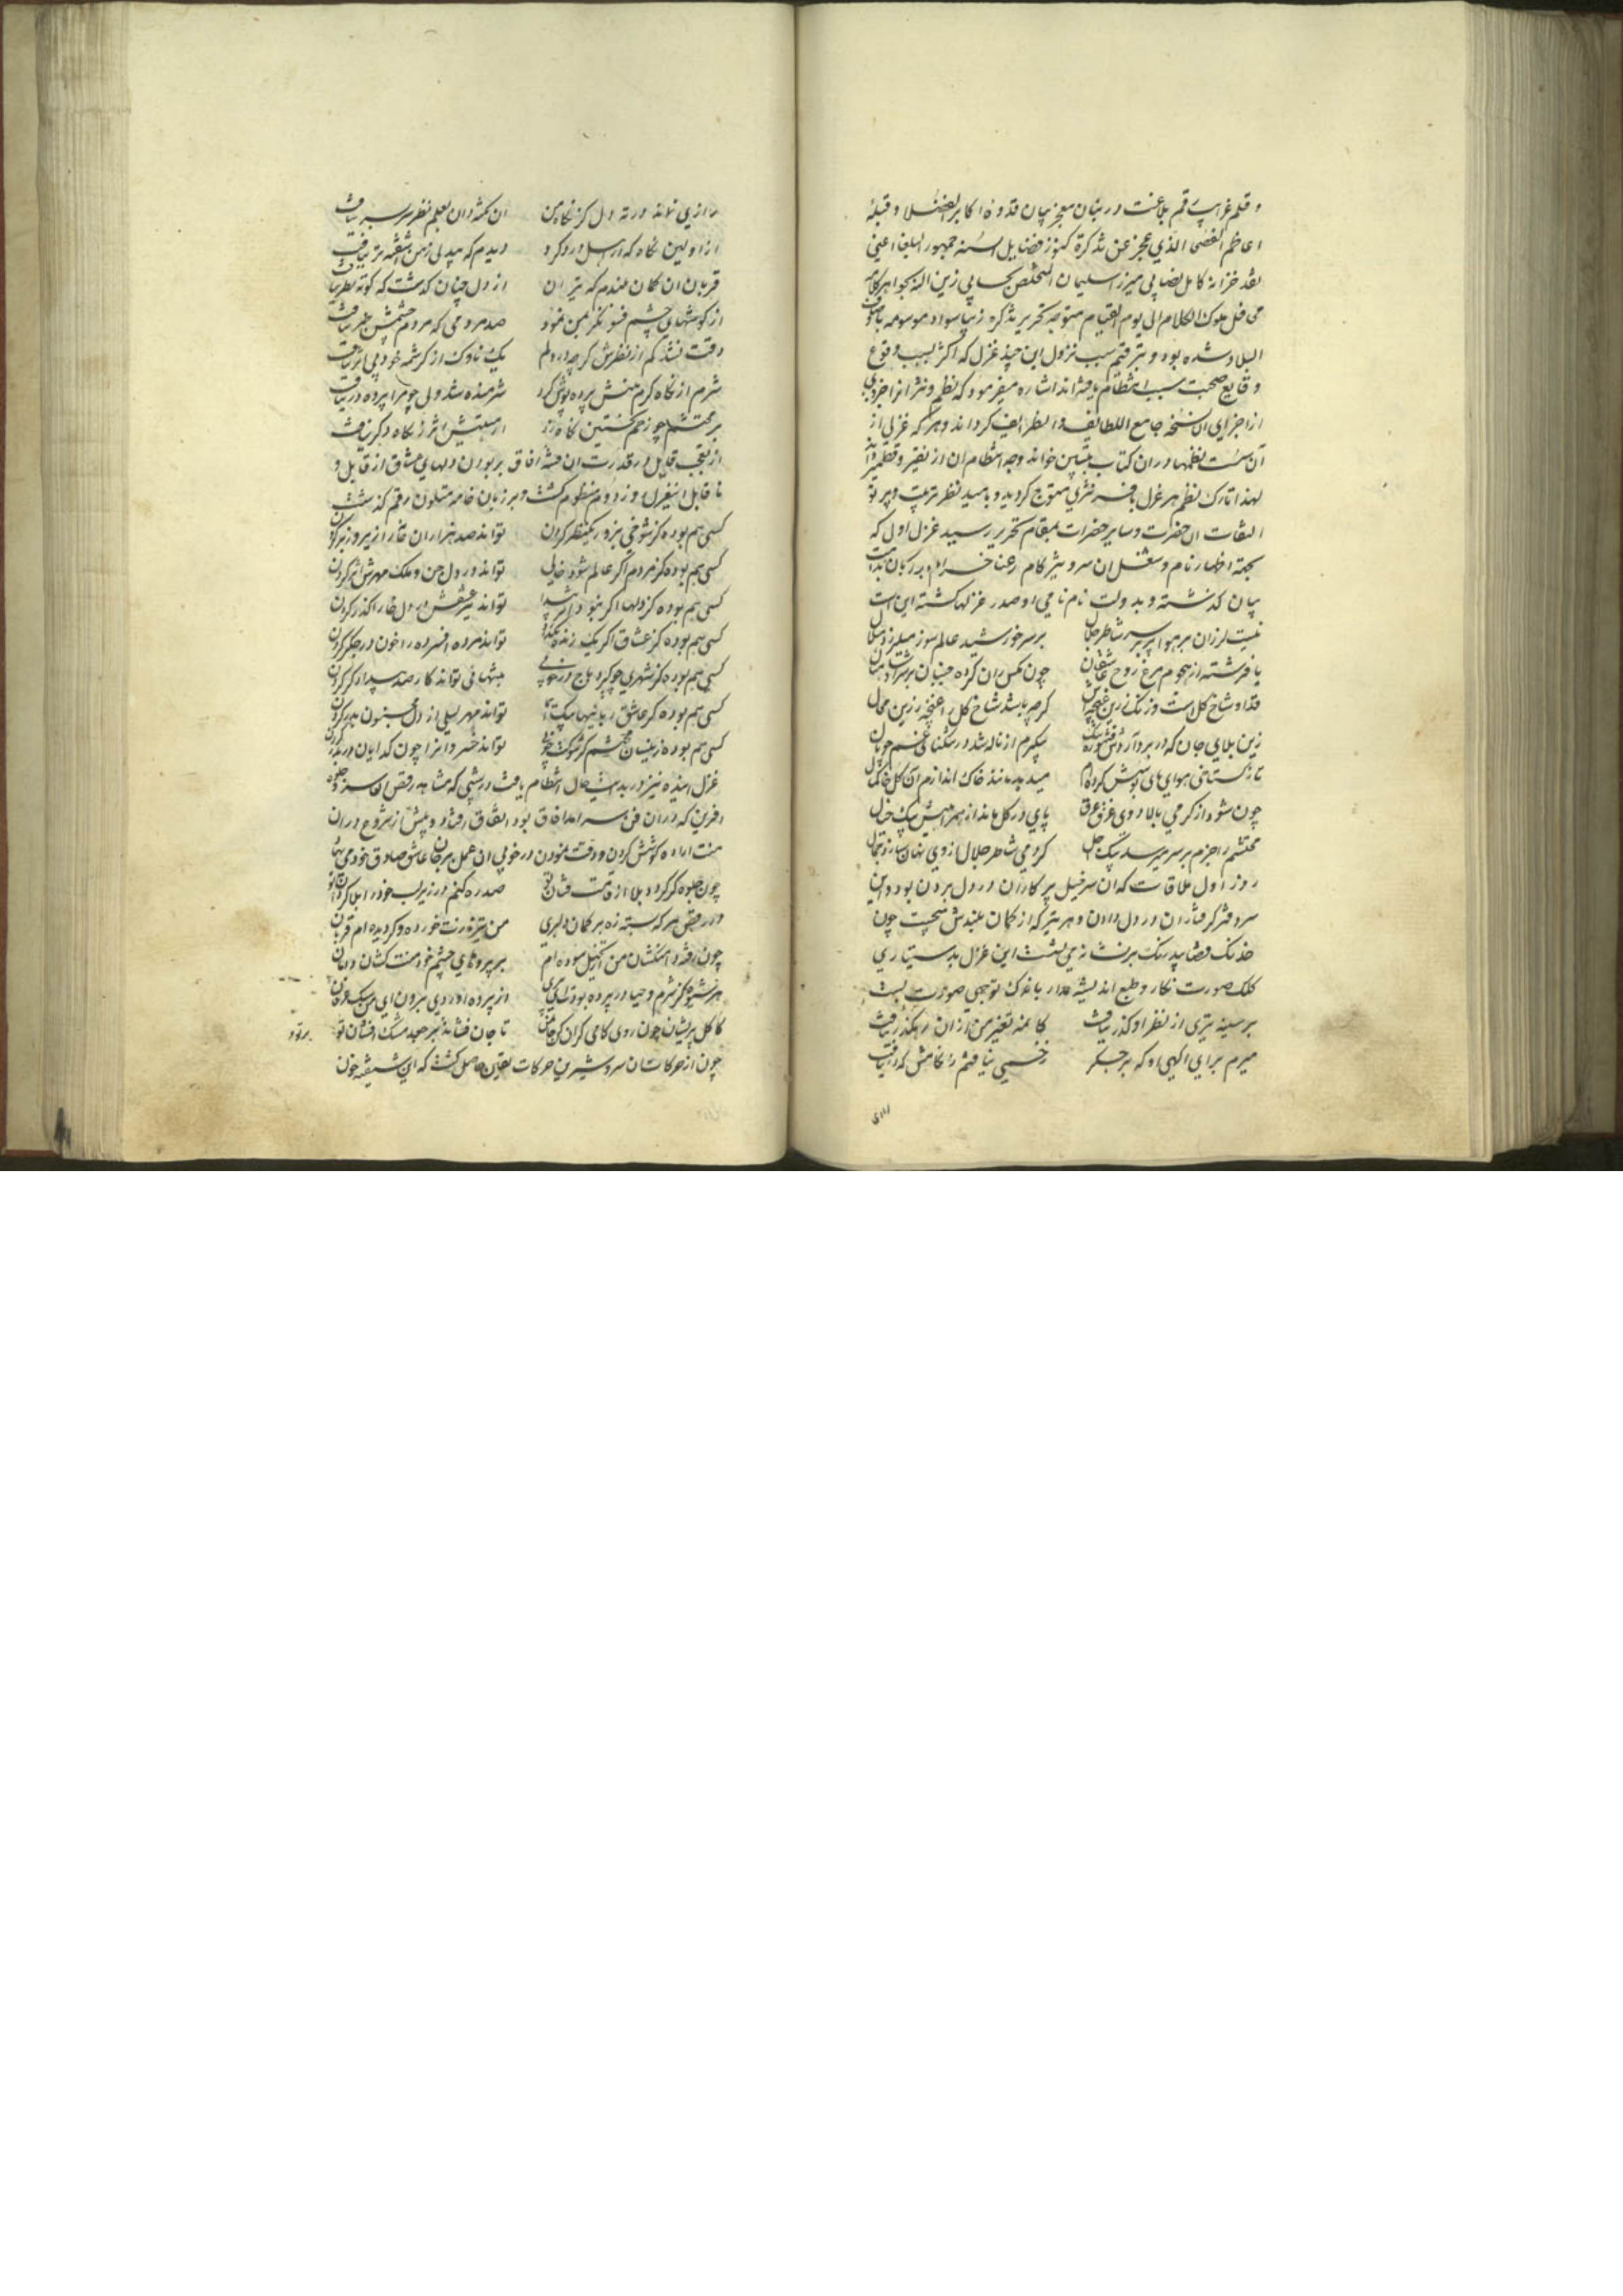 و قلم غرایب رقم بلاغت در بنان معجز بیان قدوة اکابر الفضلا و قبلهٔ
اعاظم الفصحا الذی عجز عن تذکرة کنوز فضایل السنه جمهور البلغا اعنی
نقد خزانهٔ کامل نصابی میرزا سلیمان المتخلص بحسابی زین الله بجواهر کلامه
محافل ملوک الکلام الی یوم القیام متوجه تحریر تذکره زیبا سواد موسومه
البلاد شده بود و بتر قیم سبب نزول این چند غزل که اکثر بسبب وقوع
وقایع صحبت سبب انتظام یافته‌اند اشاره میفرمود که نظم و نثر انرا جزوی
از اجزای آن نسخه جامع اللطایف و الظرایف کرداند و هر که غزلی از
آن نظمها در ان کتاب خواند وجه انتظام ان از نقیر و قطمیر داند
لهذا تارک نظم هر غزل بافسر نثری متوج کردید و بامید نظر تربیت و پرتو
التفات ان حضرت و سایر حضرات بمقام تحریر رسید غزل اول که
بجهة اظهار نام و شغل ان سرو تیز کام رعنا خرام بر زبان
بیان کذشته و بدولت نام نامی او صدر غزلها کشته این است
نیست لرزان بر هوا پر بر سر شاطر جلال بر سر خورشید عالم سوز میلرزد هلال
یا فرشته از هجوم مرغ روح عاشقان چون مکس ران کرده جنبان بر سرش
قد او شاخ کل است و زنک زرین غنچه‌اش کرچه باشد شاخ کل را غنچهٔ زرین محال
زین بلای جان که در بر پیکرم از ناله شد در تنکنای غم چو نال
تا نکستانی هوای پای بوسش کرده‌ام میدهد مانند خاک اندازم آن کل خاکمال
چون شود از کرمی بالا دوی غرق عرق پای در کل ماند از همراهیش پیک خیال
محتشم را جزم بر سر میرسد پیک اجل کر دمی شاطر جلال از وی نهان سازد جمال
روز اول ملاقات که ان سرخیل پرکاران در دل بردن بود و این
سر دفتر کرفتاران در دل دادن و هر تیر که از کمان بلندش میجست چون
خدنک قضا بیدرنک بر نشانه می نشست این غزل بدستیاری
کلک صورت نکار و طبع اندیشه مدار باندک توجهی صورت بست
بر سینه تیری از نظر او کذر نیافت کایینه تغیر من از ان رهکذر نیافت
میرم برای اکهی او که بر جکر زخمی نیافتم ز نکاهش که در نیافت
رازی
رازی نماند در ته دل کز نکاه من ان نکته دان بعلم نظر سر بسر نیافت
از اولین نکاه که ارسل در دکرد دیدم که بیدلی ز من اشفته‌تر نیافت
قربان ان کمان بلندم که تیر ان از دل چنان کذشت که کوته نظر نیافت
از کوشهای چشم فسونکر بمن نمود صد مردمی که مردم چشمش خبر نیافت
وقت نشد کم از نظرش کرچه در دلم یک ناوک از کرشمه خود بی اثر نیافت
شرم از نکاه کرم منش پرده پوش کرد شرمنده شد ولی چو مرا پرده در نیافت
بر محتشم چو زخم نخستین نکاه زد از هستیش اثر ز نکاه دکر نیافت
از تعجب قایل در قدرت ان فتنهٔ افاق بر بودن دلهای عشاق از قابل و
نا قابل اینغزل روز دوم منظوم کشت و بر زبان خامه متلون رقم کذشت
کسی هم بوده کز شوخی بزور یک نظر کردن تواند صد هزاران خانه را زیر و زبر کردن
کسی هم بوده کز مردم اکر عالم شود خالی تواند در دل جن و ملک مهرش اثر کردن
کسی هم بوده کز دلها اکر نبود دلی پیدا تواند تیر عشقش در دل خارا کذر کردن
کسی هم بوده کز عشاق اکر یک زنده نکذارد تواند مرده افسرده را خون در جکر کردن
کسی هم بوده کز شهری چو کیرد باج در خوبی بتنهائی تواند کار صد بیدادکر کردن
کسی هم بوده کز عاشق ربائیها بیک ایما تواند مهر لیلی از دل مجنون بدر کردن
کسی هم بوده زینسان محتشم کز شوکت خوبی تواند خسروانرا چون کدایان در بدر کردن
غزل اینده نیز در بدیهت حال انتظام یافت در شبی که مشاهده رقص ان سرو جلوه
افرین که در ان فن سرامد افاق بود اتفاق افتاد و پیش از شروع در ان
منت اراده کوشش کردن و دقت نمودن در خوبی ان عمل بر جان عاشق صادق خود می نهاد
چون جلوه کر کردد بلا از قامت فتان تو صد ره کنم در زیر لب خود را بلا کردان تو
در رقص هر که بسته زه بر کمان دلبری من تیر نازت خورده و کردیده‌ام قربان
چون رفته دامنکشان من انکیل سوده‌ام بر پردهای چشم خود منت کشان دامان
هر شیوه کز شرم و حیا در پرده بودت ای پری از پرده اوردی برون ای من سبک عرفان
کاکل پریشان چون روی کامی کران کامی سبک تا جان فشاند بر جعد مشک افشان تو
چون از حرکات ان سرو شیرین حرکات یقین حاصل کشت که این شیفته خون
بر تو د